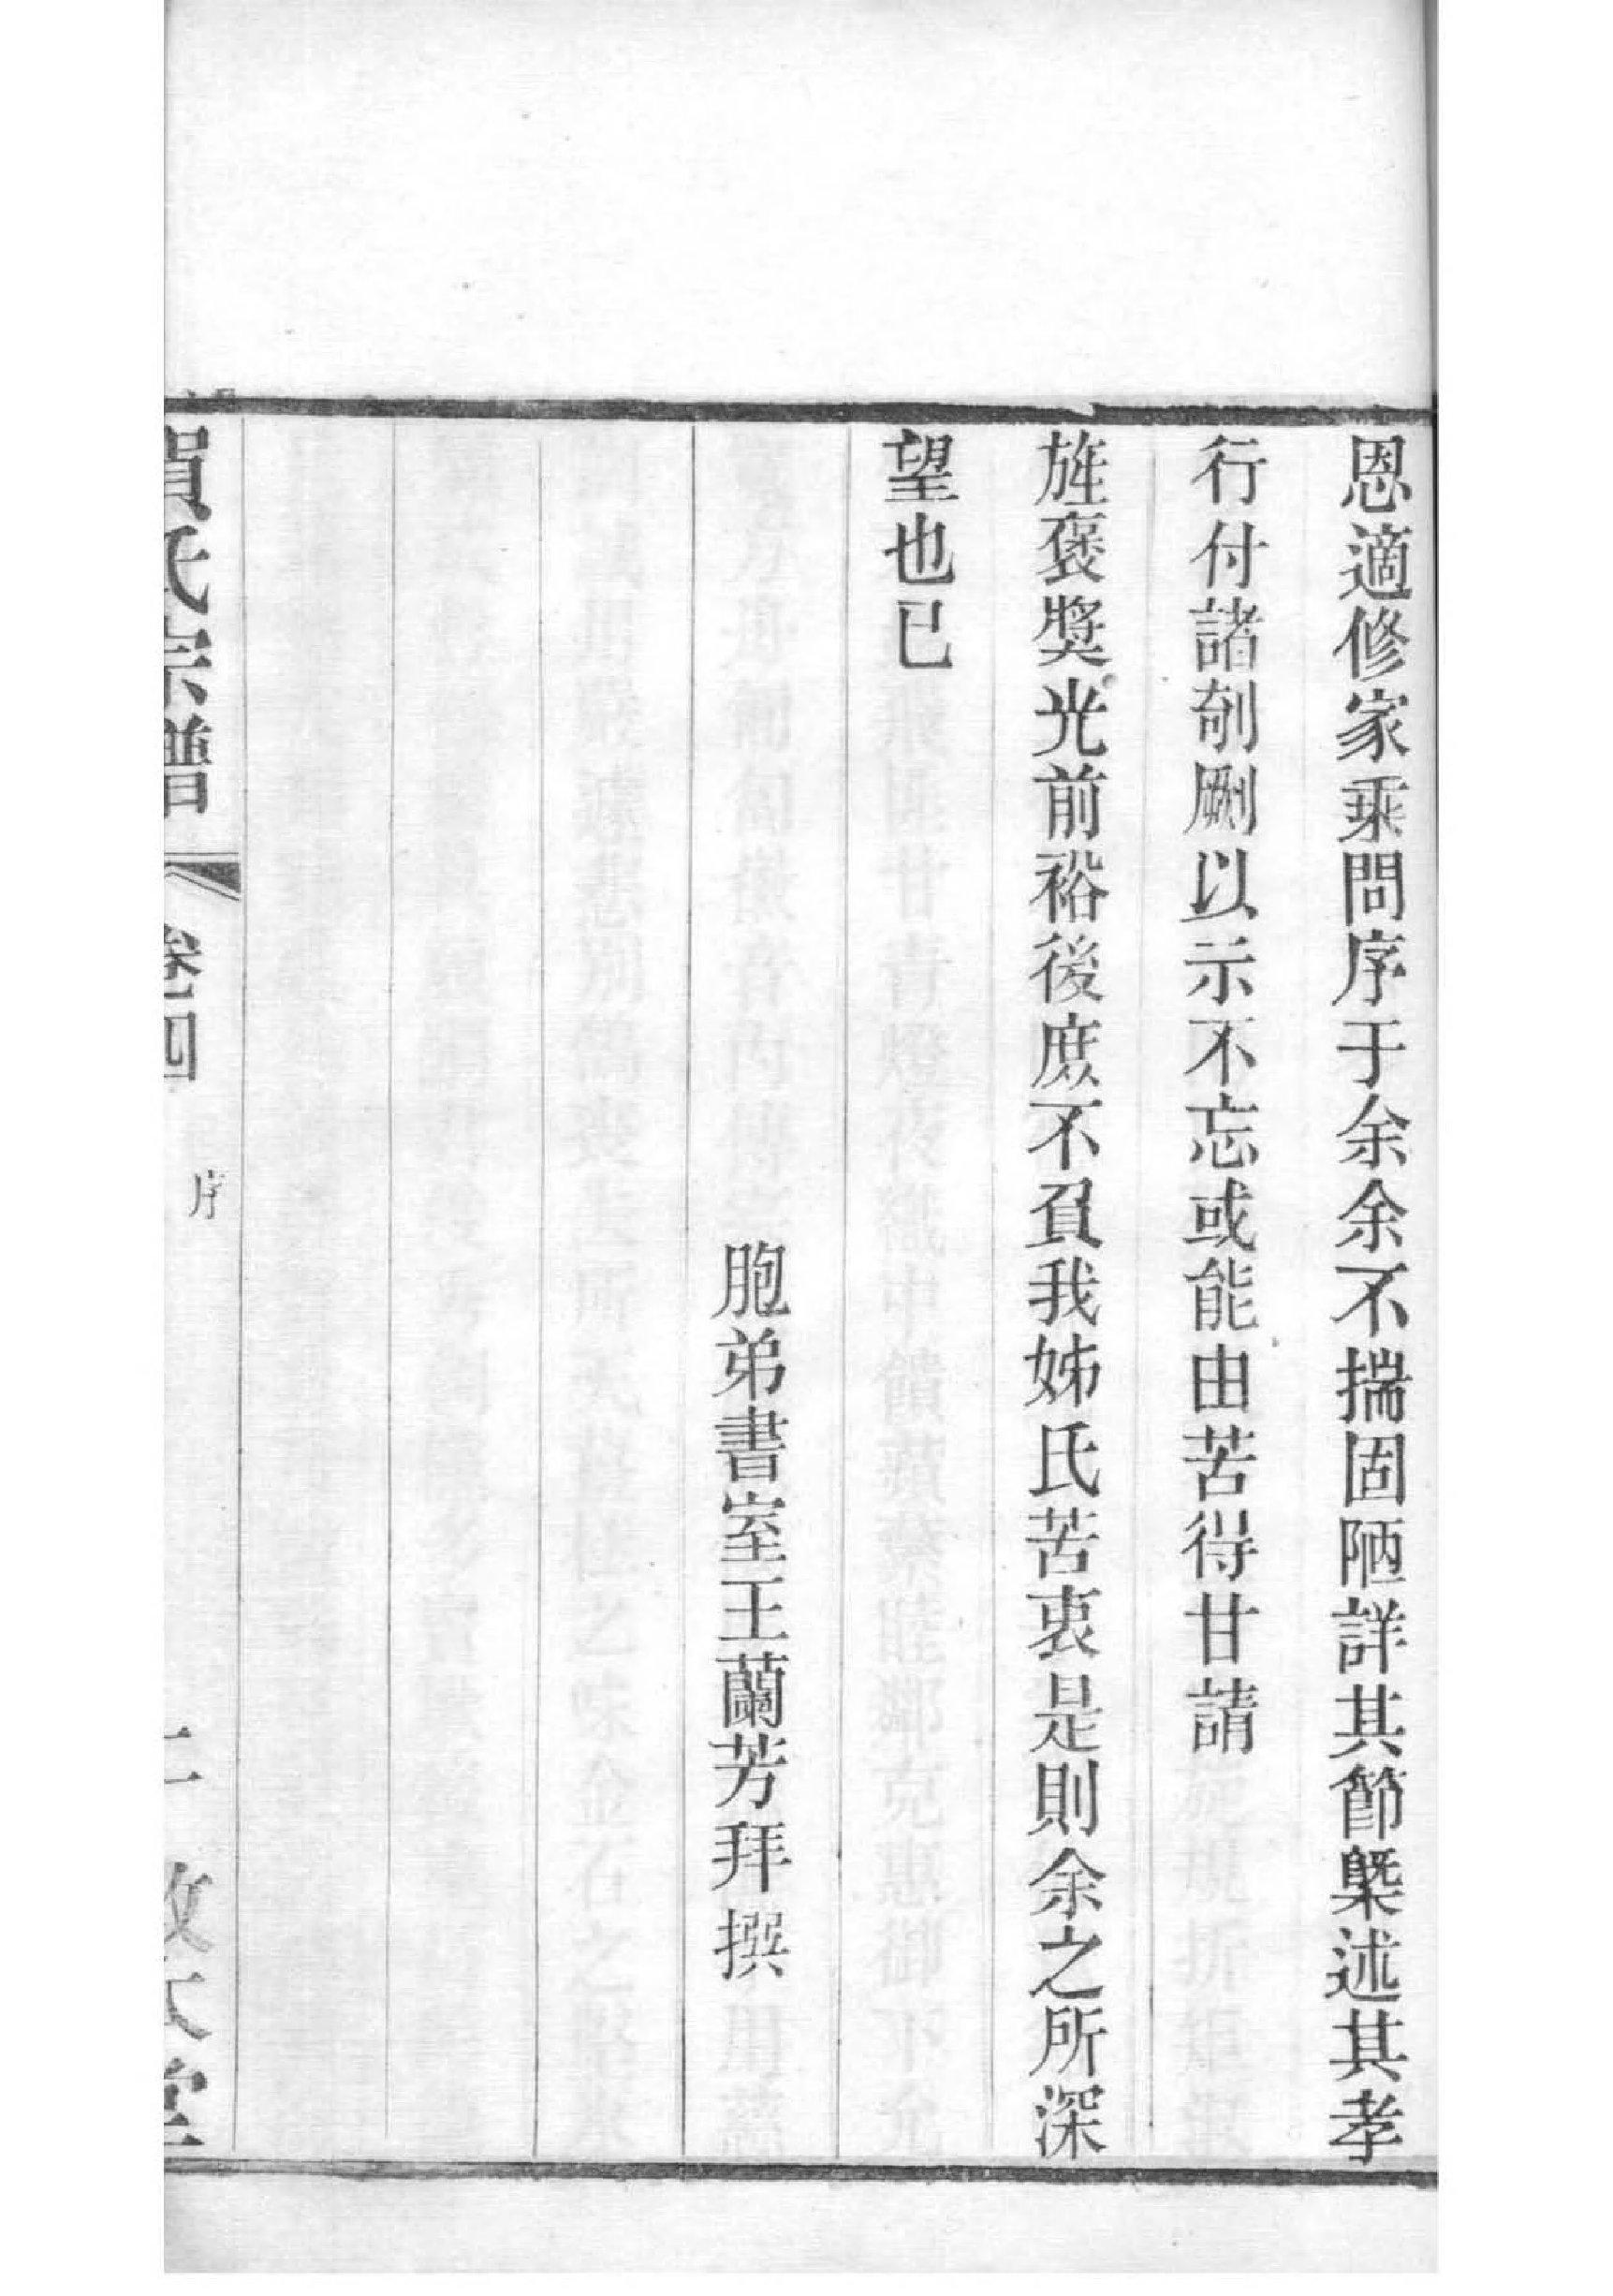 恩適修家乘問序于余余不揣固陋詳其節槩述其孝
行付諸剞劂以示不忘或能由苦得甘請
旌褒獎光前裕後庶不負我姊氏苦衷是則余之所深
望也已
胞弟書室王蘭芳拜撰
賀氏宗譜
卷四
序
二
敦大堂